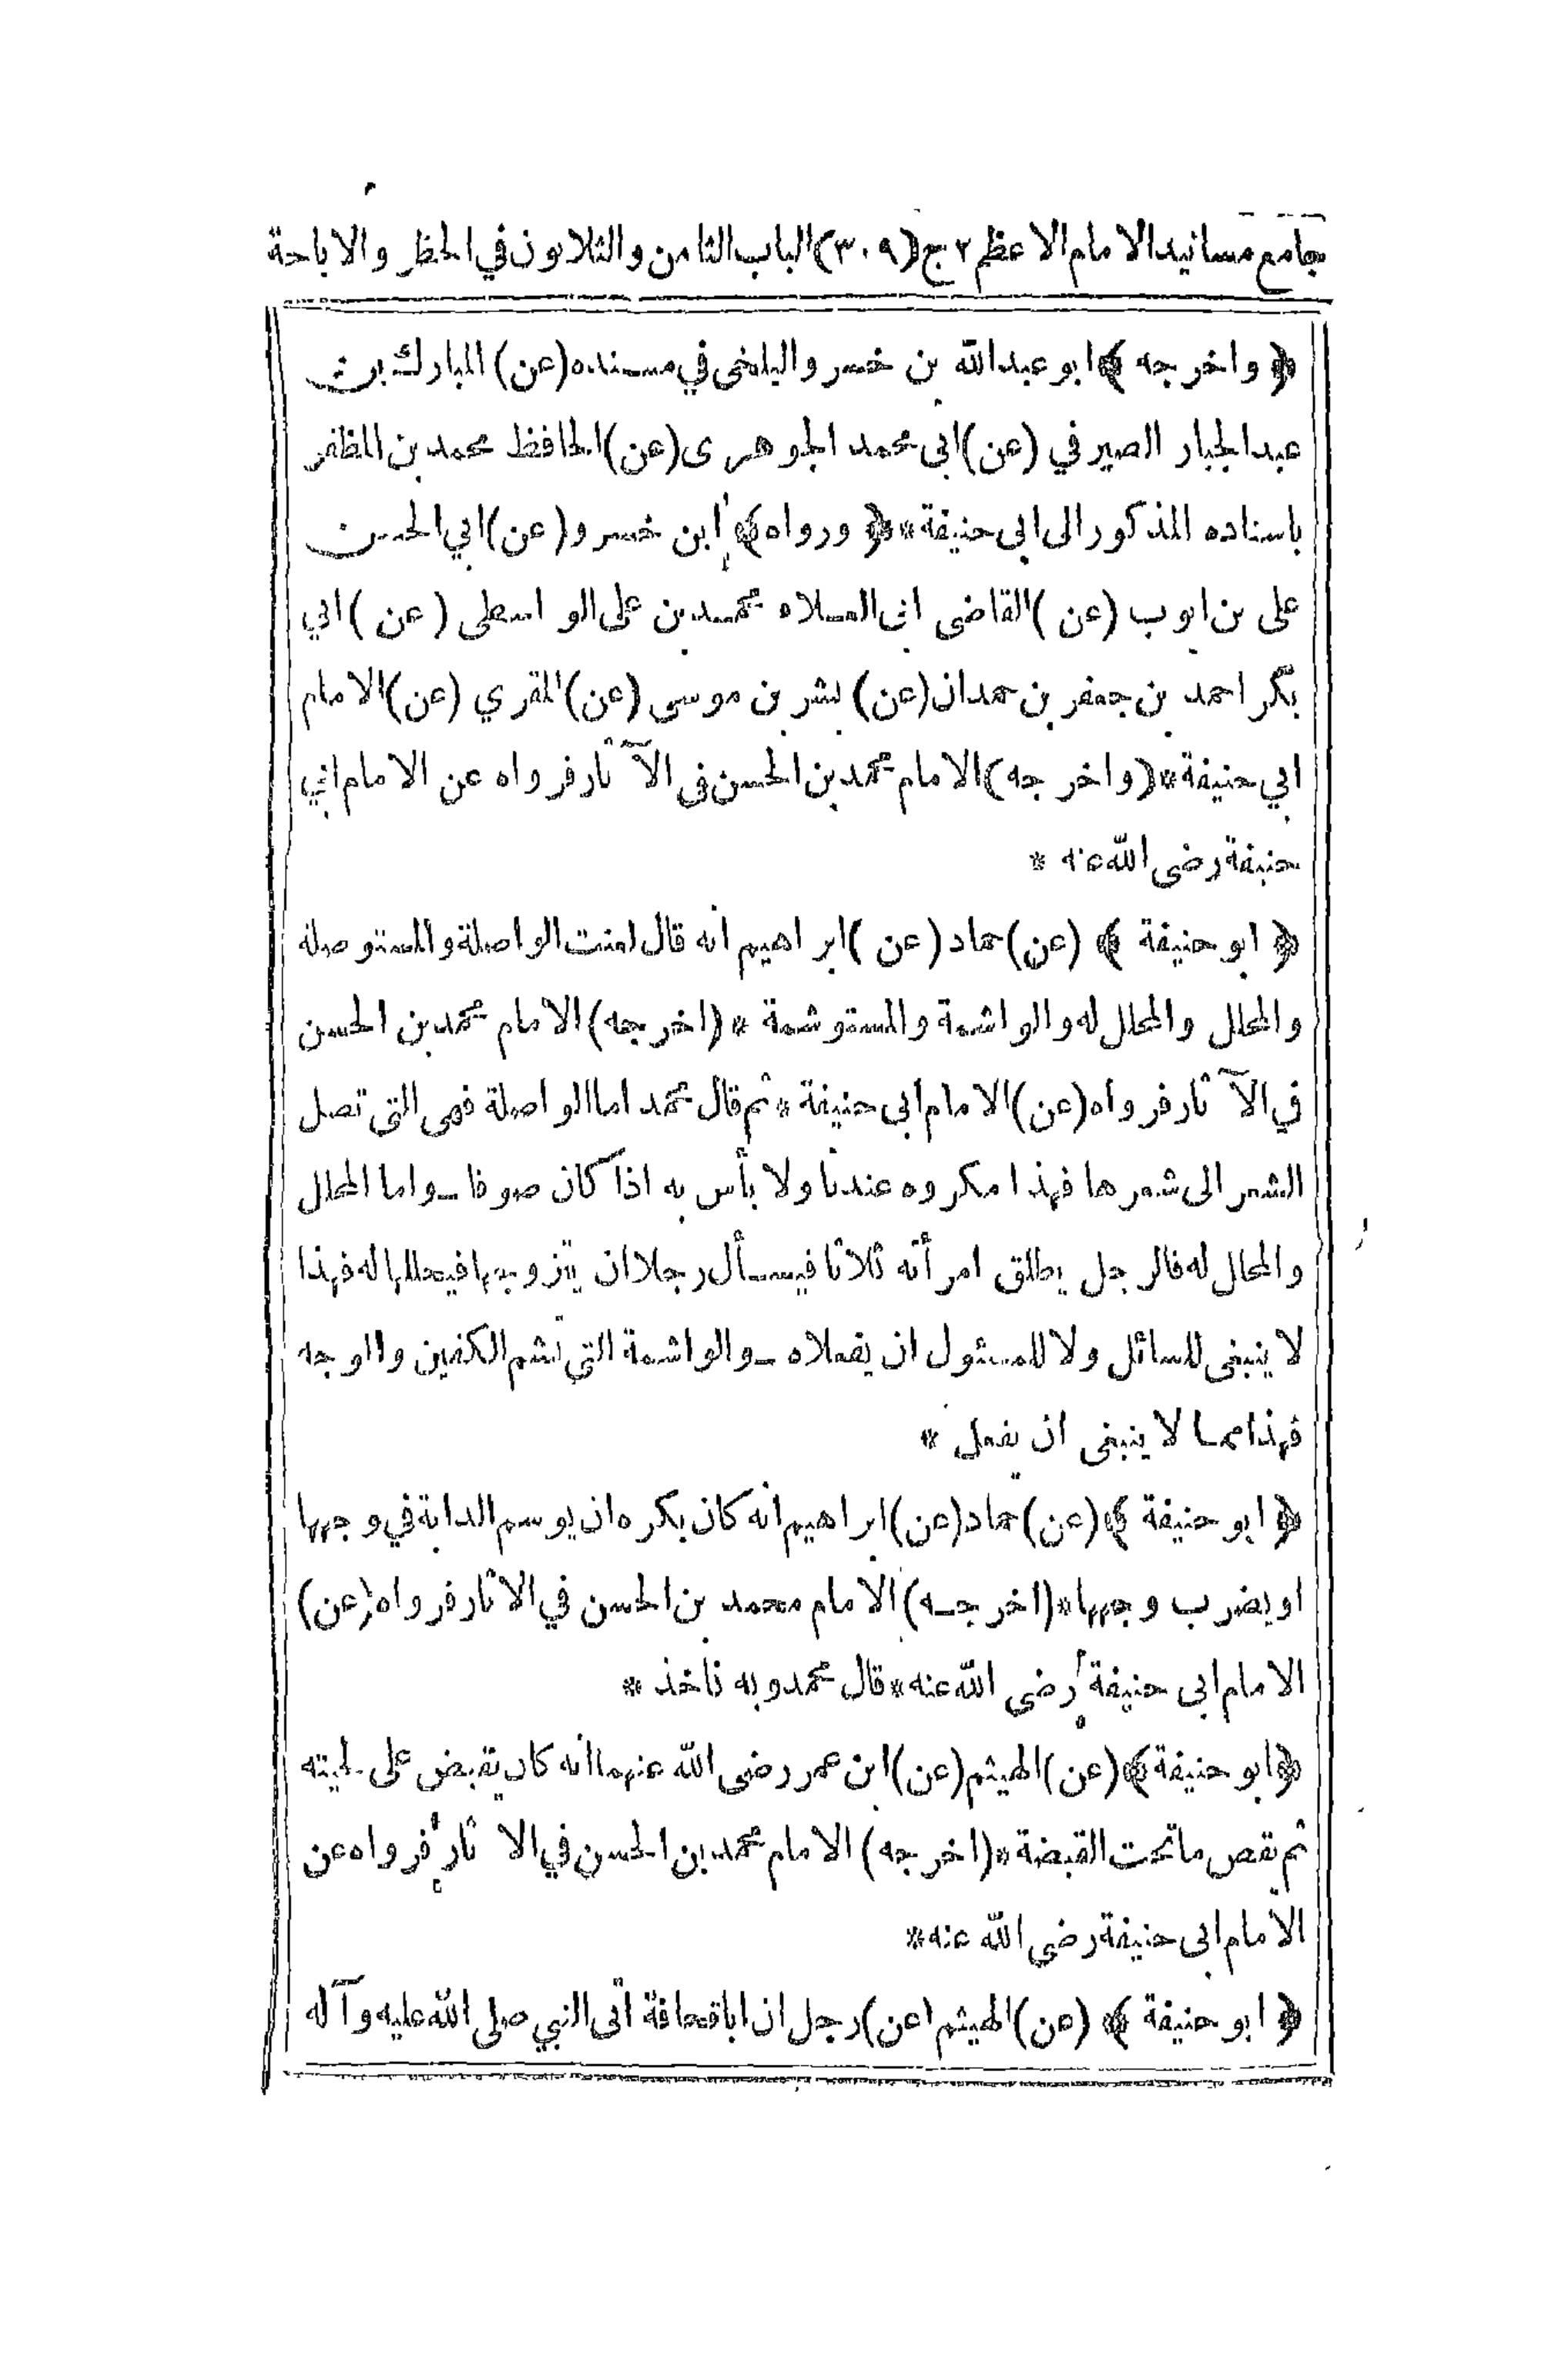 جامع مسانيد الامام الاعظم ٢ ج (٣٠٩) الباب الثامن والثلاثون في الحظر والاباحة
﴿ واخرجه ﴾ ابو عبدالله بن خسرو البلخى في مسنده (عن) المبارك بن
عبدالجبار الصيرفي (عن) ابى محمد الجوهرى (عن) الحافظ محمد بن المظفر
باسناده المذكور الى ابى حنيفة * ﴿ ورواه ﴾ ابن خسرو (عن) ابي الحسن
على بن ايوب (عن) القاضى ابى العلاء محمد بن على الواسطى (عن) ابي
بكر احمد بن جعفر بن حمدان (عن) بشر بن موسى (عن) المقري (عن) الامام
ابي حنيفة * (واخرجه) الامام محمد بن الحسن فى الآثار فرواه عن الامام ابي
حنيفة رضى الله عنه *
﴿ ابو حنيفة ﴾ (عن) حماد (عن) ابراهيم انه قال لعنت الواصلة والمستوصلة
والمحلل والمحلل له والواشمة والمستوشمة * (اخرجه) الامام محمد بن الحسن
في الآثار فرواه (عن) الامام ابى حنيفة * ثم قال محمد اما الواصلة فهى التى تصل
الشعر الى شعرها فهذا مكروه عندنا ولا بأس به اذا كان صوفا ــ واما المحلل
والمحلل له فالرجل يطلق امرأته ثلاثا فيسأل رجلا ان يتزوجها فيحللها له فهذا
لا ينبغى للسائل ولا للمسئول ان يفعلاه ــ والواشمة التي تشم الكفين والوجه
فهذا مما لا ينبغى ان يفعل *
﴿ ابو حنيفة ﴾ (عن) حماد (عن) ابراهيم انه كان يكره ان يوسم الدابة في وجهها
او يضرب وجهها * (اخرجه) الامام محمد بن الحسن في الآثار فرواه (عن)
الامام ابى حنيفة رضى الله عنه * قال محمد وبه ناخذ *
﴿ ابو حنيفة ﴾ (عن) الهيثم (عن) ابن عمر رضى الله عنهما انه كان يقبض على لحيته
ثم يقص ما تحت القبضة * (اخرجه) الامام محمد بن الحسن في الآثار فرواه عن
الامام ابى حنيفة رضى الله عنه *
﴿ ابو حنيفة ﴾ (عن) الهيثم (عن) رجل ان اباقحافة اتى النبي صلى الله عليه وآله